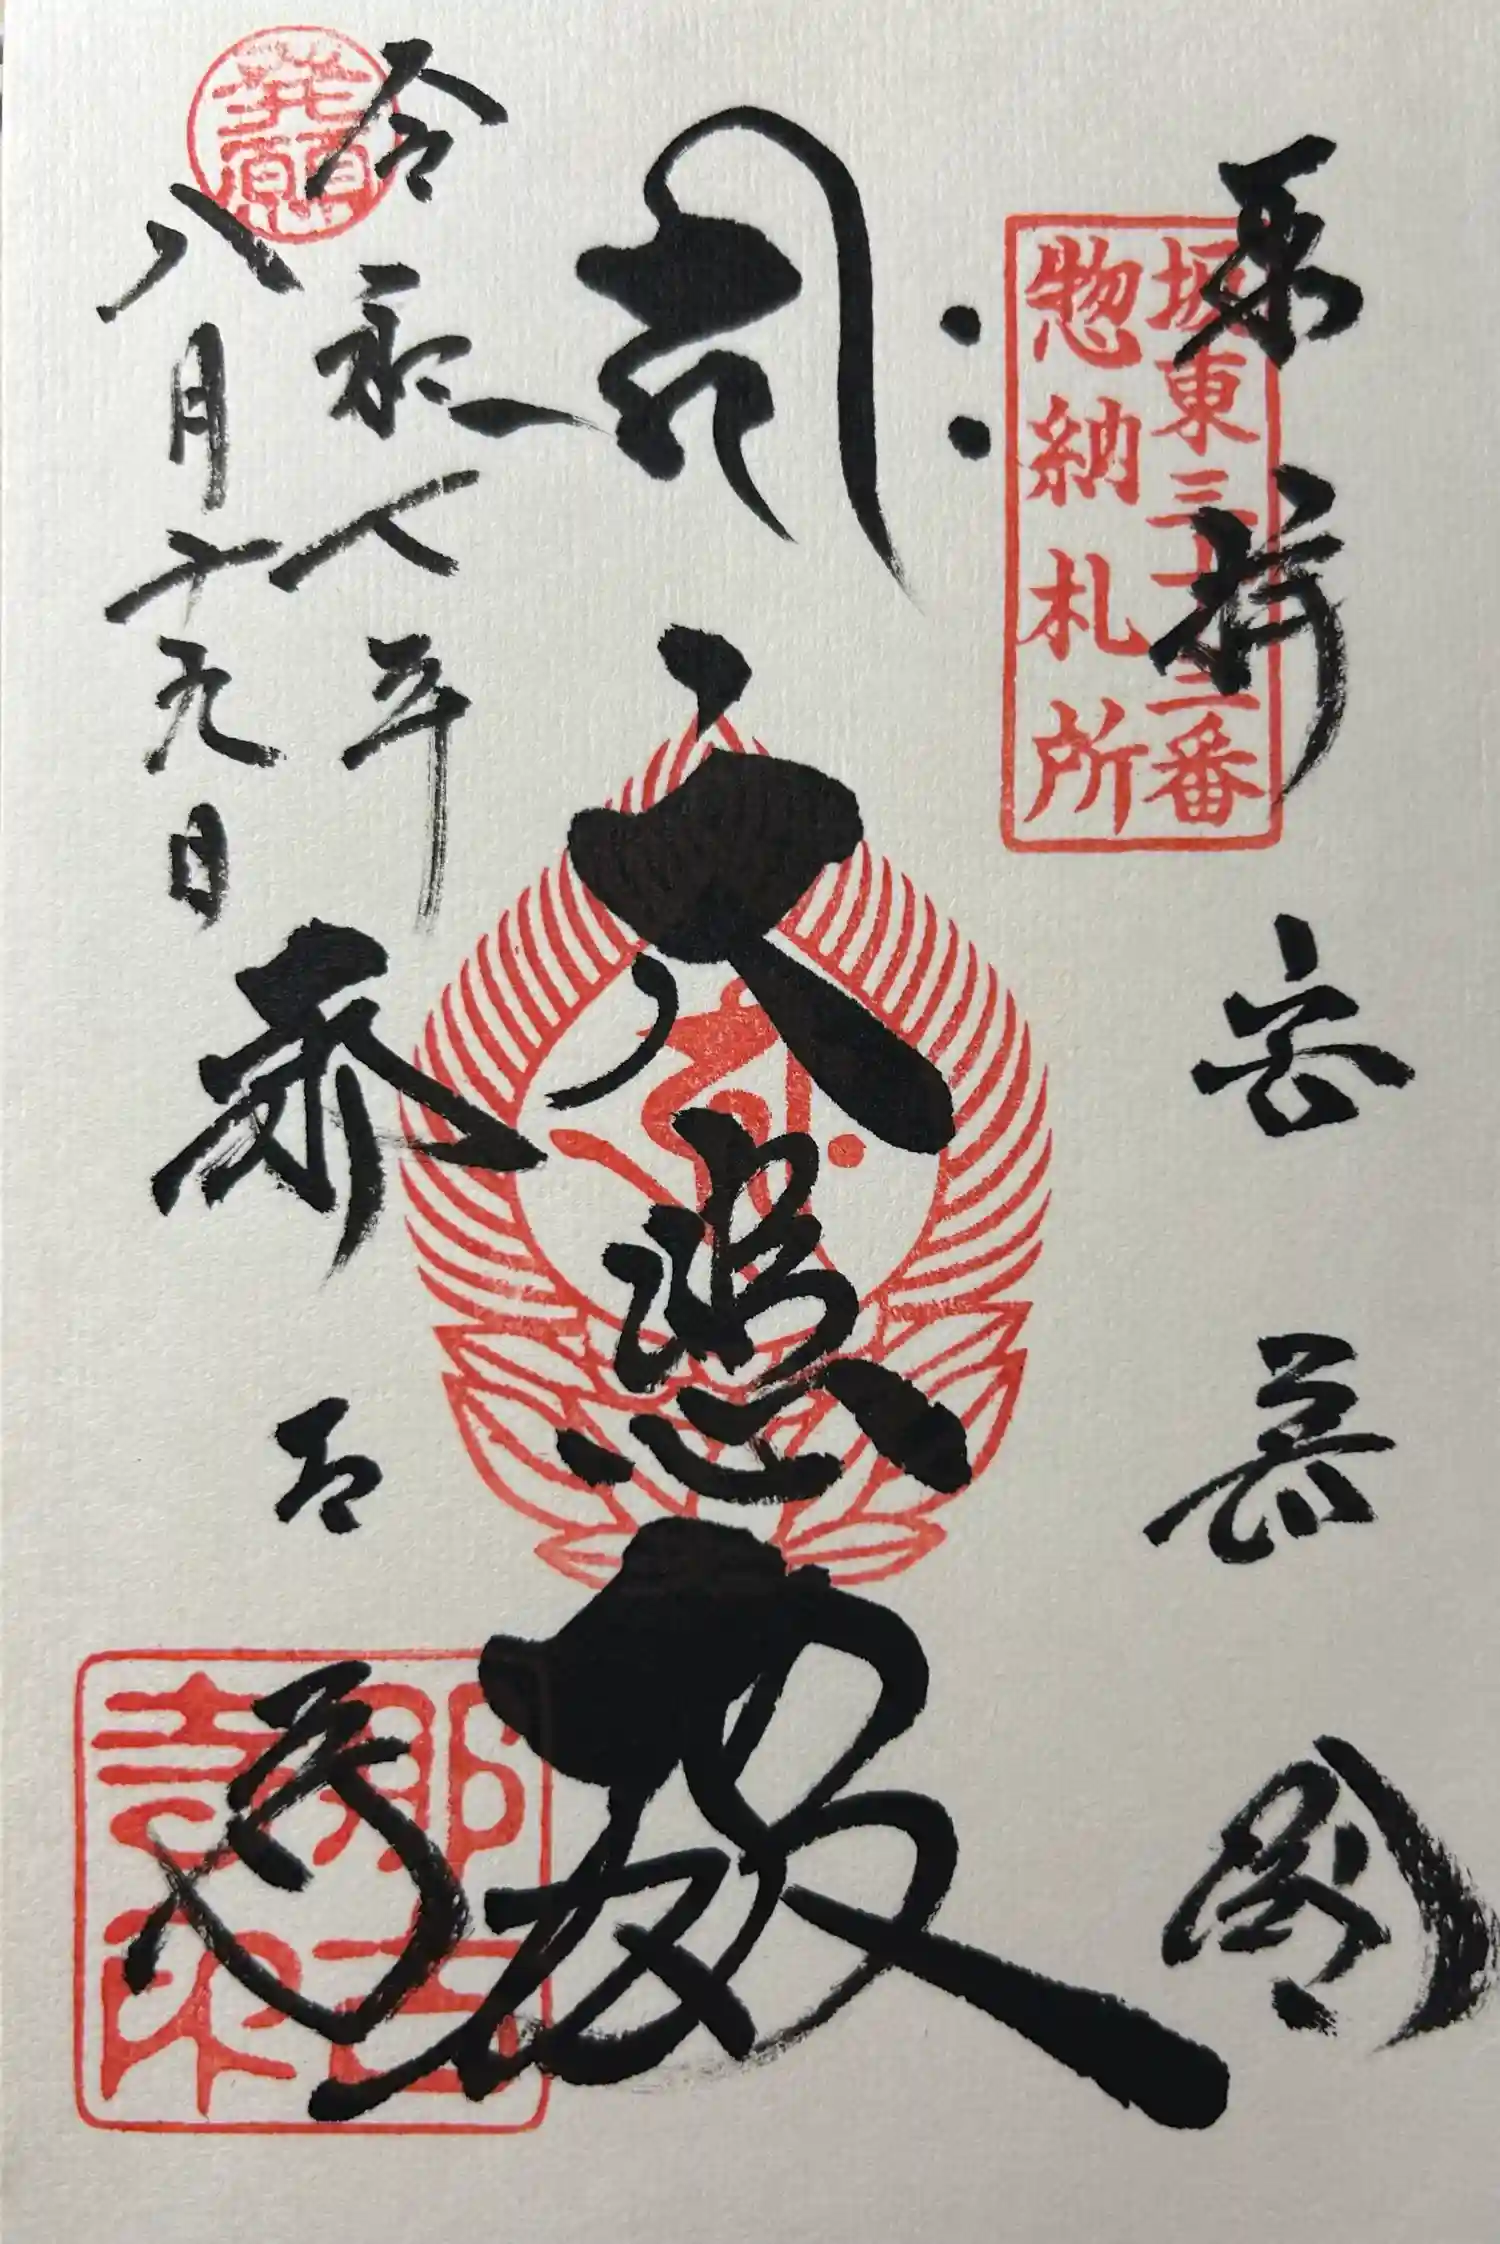 奉拝 安房国
坂東三十三番
惣納札所
大悲殿
令和七年
八月十九日
那古寺
那古
寺印